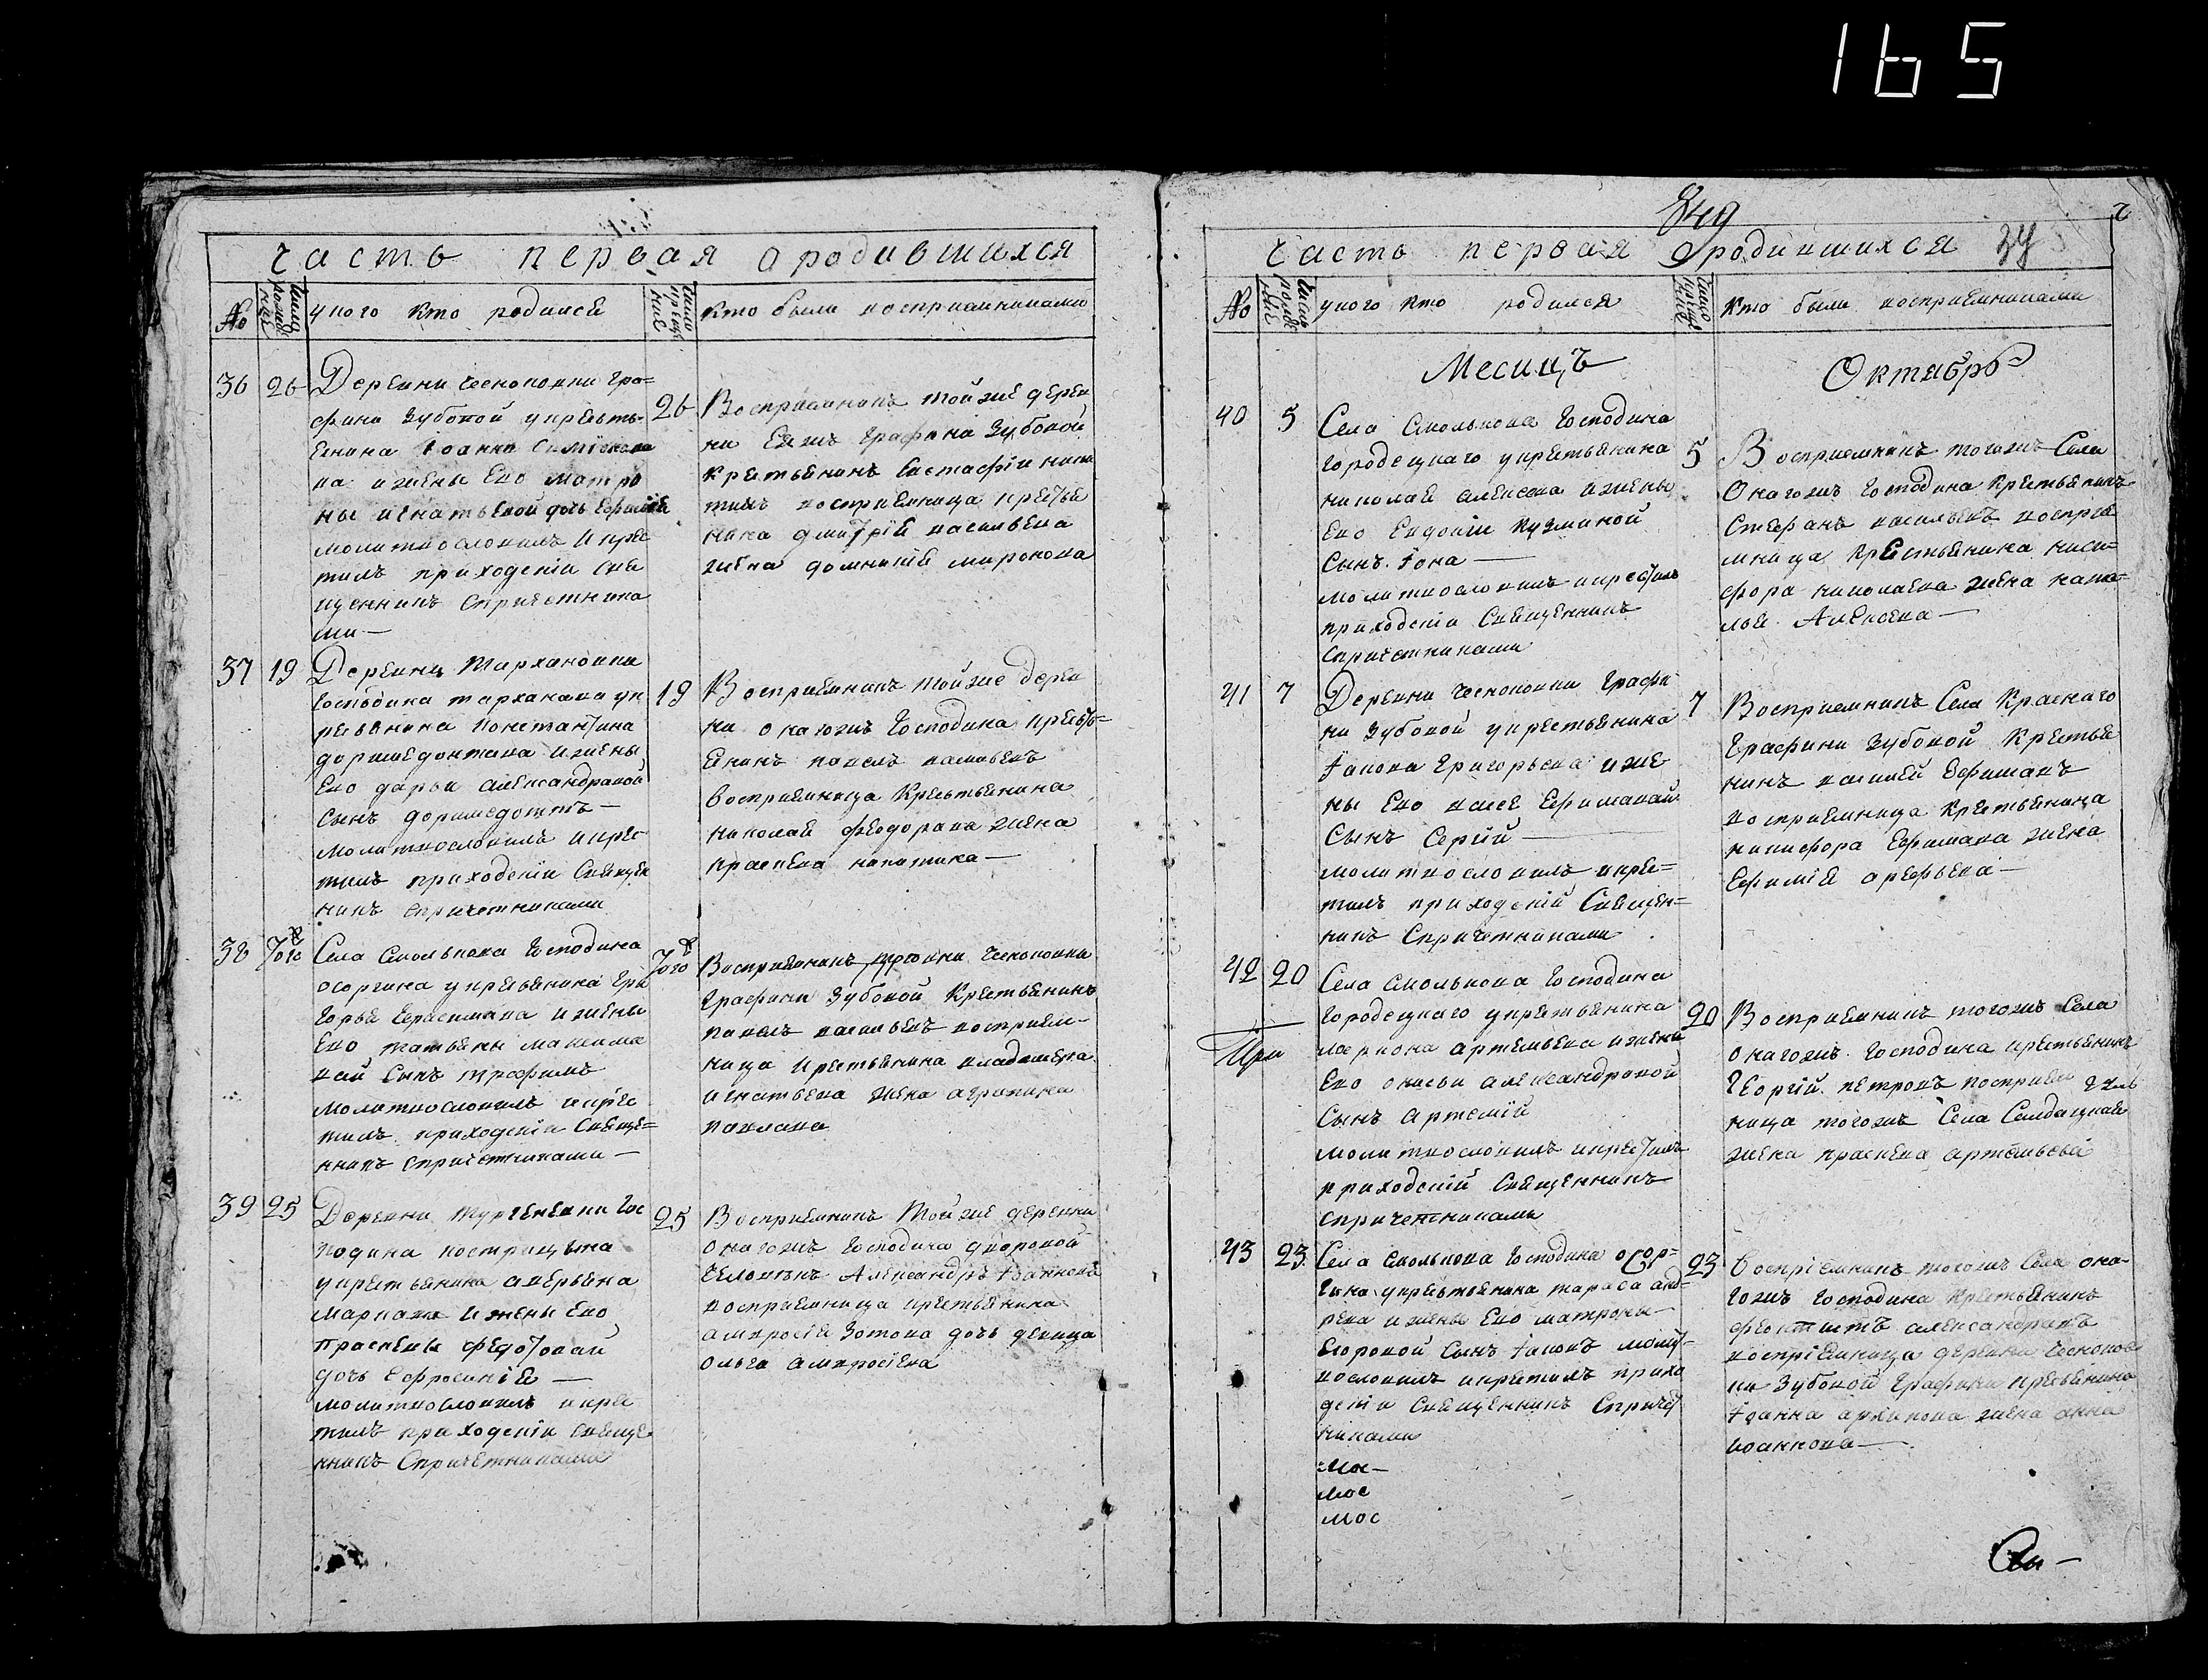 165
часть первая о родившихся
No
число рожденiя
у кого кто родился
число крещенiя
кто были восприемниками
36
26
Деревни Чесноковки гра=
фини Зубовой у кресть
енина Iоанна
ва и жены Ево Матро
ны Игнатьевой дочь
молитвословилъ и крес
тилъ приходскiи свя
щенникъ спричетника
ми —
26
Восприемникъ тойже дерев
ни графини Зубовой
крестьенинъ
восприемница кресьте
нина Дмитрiя васильева
жена Домникiя миронова
37
19
Деревни Тархановки
господина тарханова у к
ресьянина Константина
доримедонтова и жены
Ево дарьи александровой
сынъ доримедонтъ —
молитвословилъ и крес
тилъ приходскiи Священ
никъ спричетниками
19
Восприемникъ тойже дерев
ни онагожъ господина кресть=
енинъ павелъ васильевъ
восприемница крестьенина
николая феодорава жена
праскева
38
Того
Села Смолькова господина
осоргина у кресьянина Гри
горья Герасимава и жены
Ево татьяны максима
вай сынъ трафимъ
молитвословилъ и крес
тилъ приходскiи Свяще=
нникъ спричетниками —
Того
Восприемникъ Чесноковки
графини Зубовой крестьенинъ
павелъ васильевъ восприем-
ница крестьянина владимера
игнатьева жена аграпина
павлава
39
25
Деревни Тургеневки Гос
подина пострицына
у крестьянина аверьяна
Маркава и жены Ево
Праскевы федотовай
дочь Ефросинiя —
молитвословилъ и крес
тилъ приходскiи Свяще
нникъ Спричетниками
25
Восприемникъ Тойже деревни
онагожъ господина дворовой
человекъ Александръ Iоанновъ
восприемница крестьянина
амвросiя Зотова дочь девица
Ольга амвросiева
849
34
часть первая о родившихся
No
число рожденiя
у кого кто родился
число крещенiя
кто были восприемниками
Месицъ
Октябрь
40
5
Села Смолькова Господина
городецкаго у крестьянина
николая алексева и жены
Ево Евдокiи Кузминой
Сынъ Iона —
молитвословилъ и крестилъ
приходскiи Священникъ
спричетниками
5
Восприемникъ тогожъ Села
Онагожъ господина крестьянинъ
Стефанъ васильевъ воспрiе
мница крестьянина ники=
фора николаева жена ната=
лья Алексева —
41
7
Деревни Чесноковки Графи
ни Зубовой у крестьянина
Iакова Григорьева и же
ны Ево Ефимавай
Сынъ Сергiй —
молитвословилъ и крес=
тилъ приходскiй Священ=
никъ Спричетниками
7
Восприемникъ Села Краснаго
графини Зубовой Крестья
нинъ василей Ефимавъ
восприемница Крестьянина
никифора Ефимава жена
Ефимiя арефьева —
42
20
Села Смолькова Господина
городецкаго у крестьянина
лариона артемьева и жены
Ево александровой
Сынъ Артемiй
молитвословилъ и крестилъ
приходскiй Священникъ
спричетниками
При
20
Восприемникъ тогожъ Села
онагожъ Господина крестьянинъ
Георгiй петровъ восприем
ница тогожъ Села Салдацкая
жена праскева артемьева
43
23
Села Смолькова Господина осор=
гина у крестьянина тараса анд=
реева и жены Ево матроны
Егоровой Сынъ Iаковъ молит=
вословилъ и крестилъ прихо
дскiи Священникъ Спричет
никами
мос —
мос
мос
23
воспрiемникъ тогожъ Села она=
гожъ Господина крестьянинъ
феоктистъ александровъ
воспрiемница деревни Чесноков
ки Зубовой Графини кресьянина
Iоанна архипова жена анна
иоаннова —